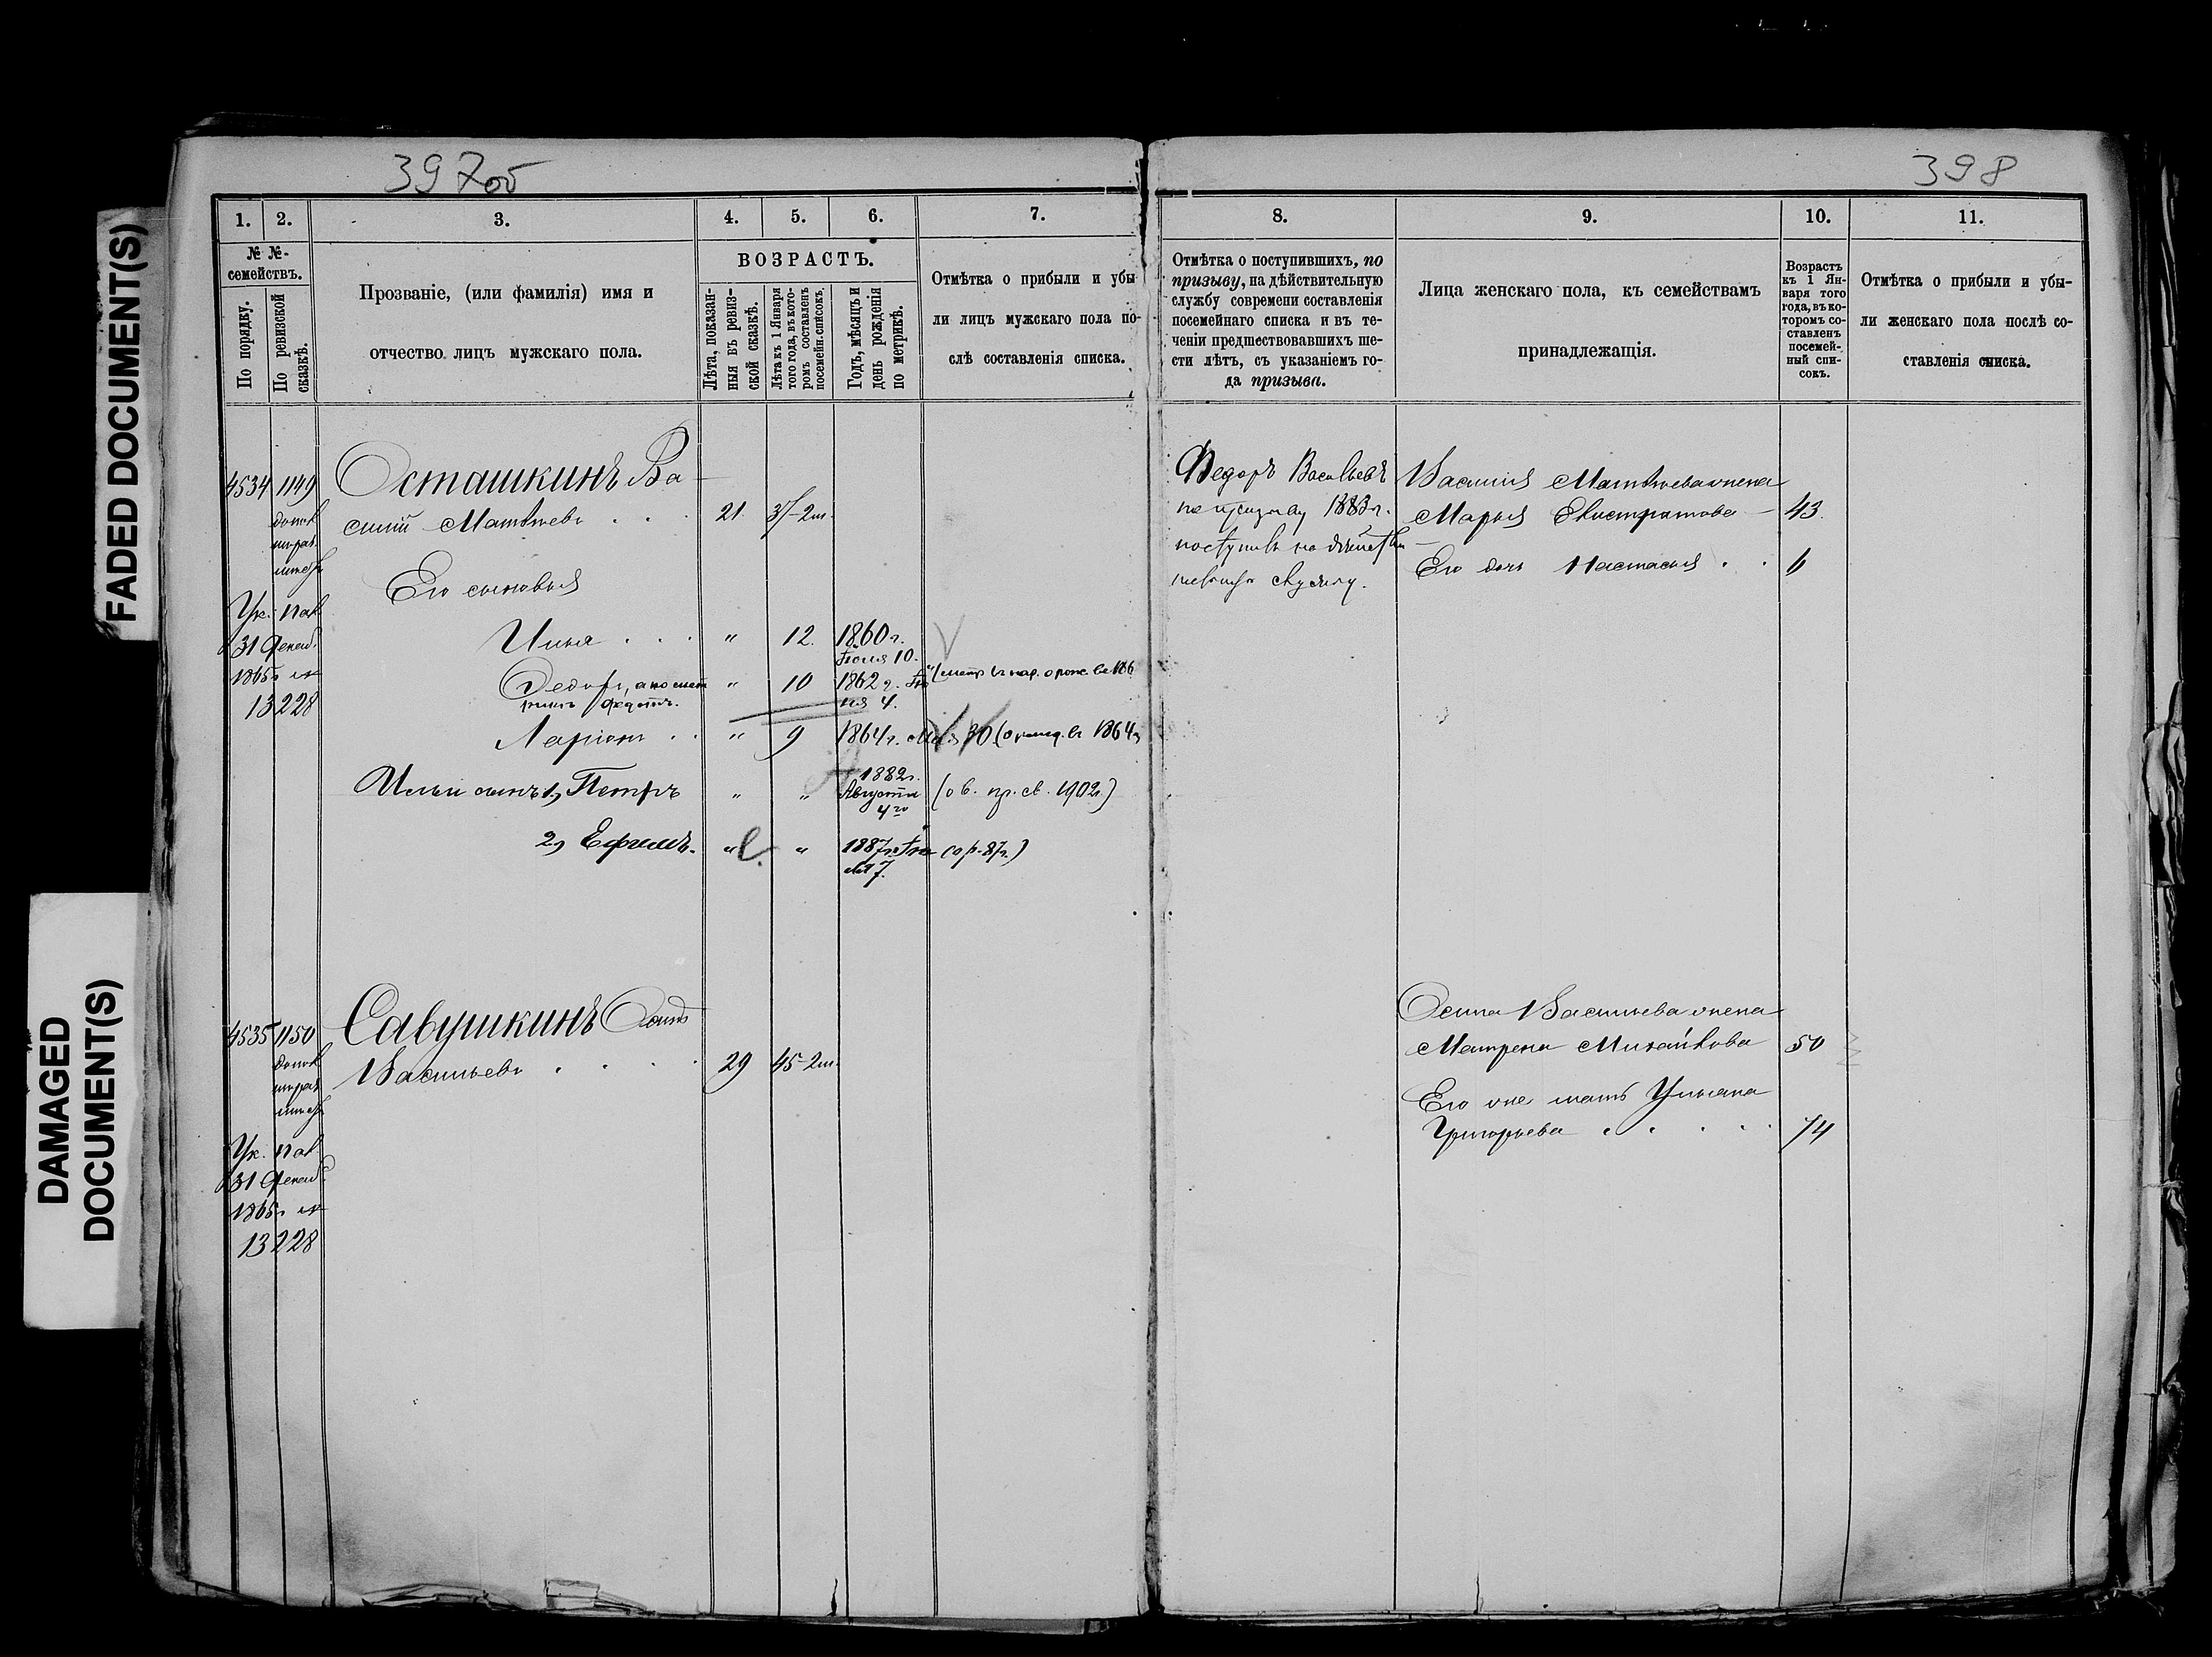 FADED DOCUMENT(S)
DAMAGED
DOCUMENT(S)
397об
1.
2.
3.
4.
5.
6.
7.
№ №
семействъ.
По порядку.
По ревизской
сказкѣ.
Прозваніе, (или фамилія) имя и
отчество лицъ мужскаго пола.
ВОЗРАСТЪ.
Лѣта, показан-
ныя въ ревиз-
ской сказкѣ.
Лѣта къ 1 Января
того года, въ кото-
ромъ составленъ
посемейн. списокъ.
Годъ, мѣсяцъ и
день рожденія
по метрикѣ.
Отмѣтка о прибыли и убы
ли лицъ мужскаго пола по-
слѣ составленія списка.
4534 1149
Осташкинъ Ва-
силій Матвѣевъ 21. 37-2м.
Его сыновья
31 Декаб.
1865г
13228
Илья " 12. 1860г.
Іюля 10.
Ѳедоръ, а по мет " 10 1862г.
4.
Ларіонъ " 9 1864г. Мая 30
Ильи сынъ 1, Петръ " " 1882г.
Августа
4го
(о в. пр. св. 1902г.)
2, Ефимъ. " " 1887г. (о р. 87г.)
7.
4535 1150
Савушкинъ Осипъ
Васильевъ 29 45-2м.
31 Декаб.
1865г
13228
398
8.
9.
10.
11.
Отмѣтка о поступившихъ, по
призыву, на дѣйствительную
службу современи составленія
посемейнаго списка и въ те-
ченіи предшествовавшихъ ше-
сти лѣтъ, съ указаніемъ го-
да призыва.
Лица женскаго пола, къ семействамъ
принадлежащія.
Возрастъ
къ 1 Ян-
варя того
года, въ ко-
торомъ со-
ставленъ
посемей-
ный спи-
сокъ.
Отмѣтка о прибыли и убы-
ли женскаго пола послѣ со-
ставленія списка.
Ѳедоръ Васильевъ
по призыву 1883г.
поступилъ на дѣйстви-
тельную службу.
Василія Матвѣева жена
Марья Евстратова - 43.
Его дочь Настасья 6
Осипа Васильева жена
Матрена Михайлова 50
Его же мать Ульяна
Григорьева 74